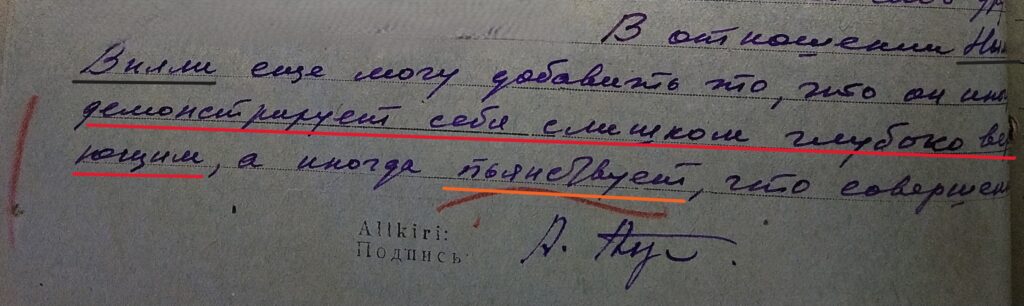 В отношении
Вияли еще могу добавить то, что он
демонстрирует себя слишком глубоко ве
ющим, а иногда пьянствует, что совершен
Allkiri:
Подпись
А.